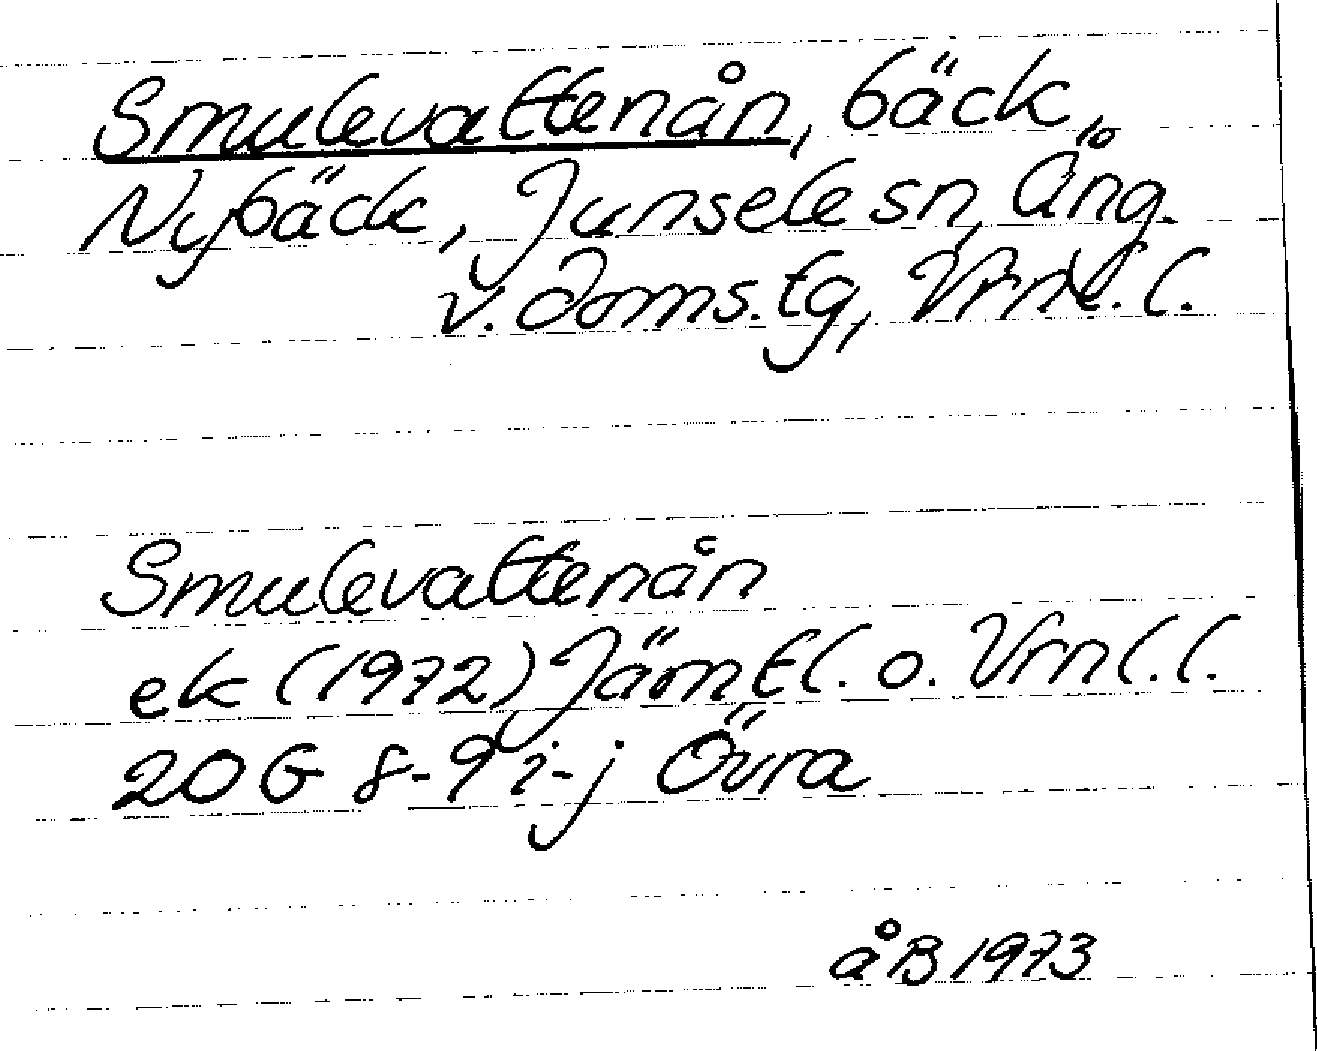 Smulevattenån, bäck,
Nybäck, Junsele sn, Ång.
v. doms.tg, Vrnl. l.
Smulevattenån
ek (1972) Jämtl. o. Vrnl. l.
20 G 8-9 i-j Övra
åB 1973